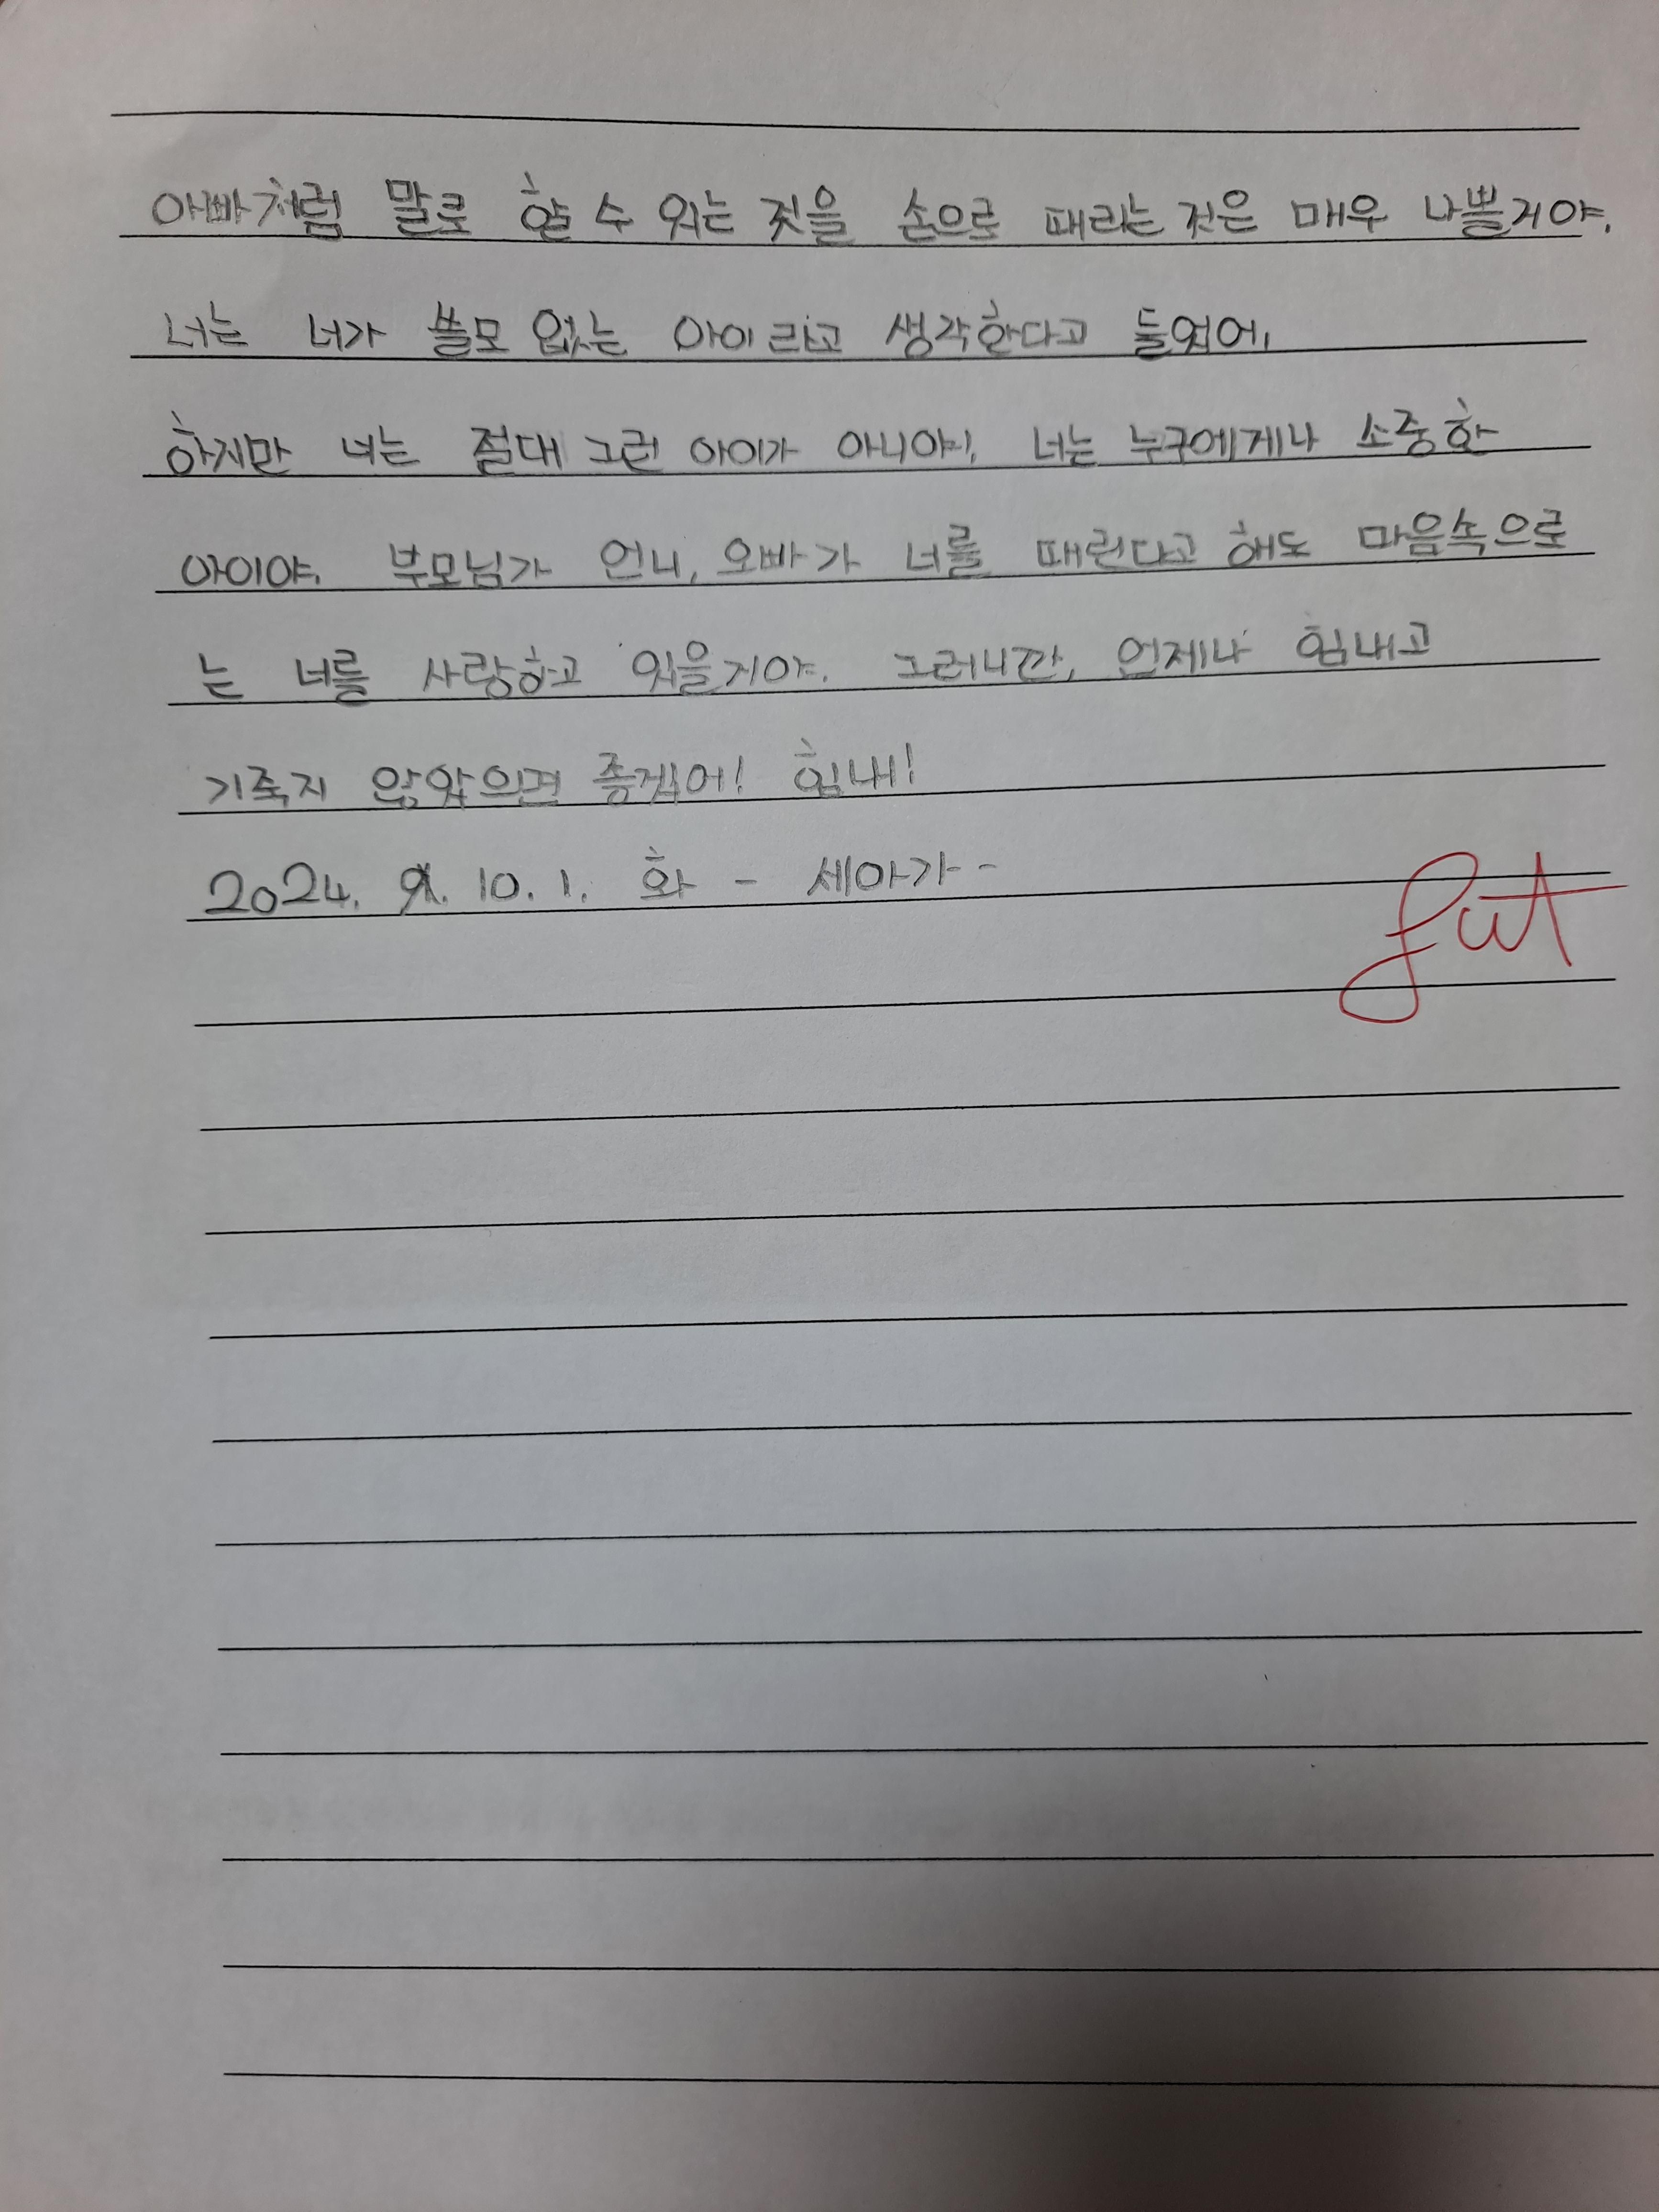 아빠처럼 말로 할 수 있는 것을 손으로 때리는 것은 매우 나쁠거야.
너는 너가 쓸모 없는 아이라고 생각한다고 들었어.
하지만 너는 절대 그런 아이가 아니야!. 너는 누구에게나 소중한
아이야. 부모님가 언니, 오빠가 너를 때린다고 해도 마음속으로
는 너를 사랑하고 있을거야. 그러니깐, 언제나 힘내고
기죽지 않았으면 좋겠어! 힘내!
2024. 10. 1. 화 - 세아가 -